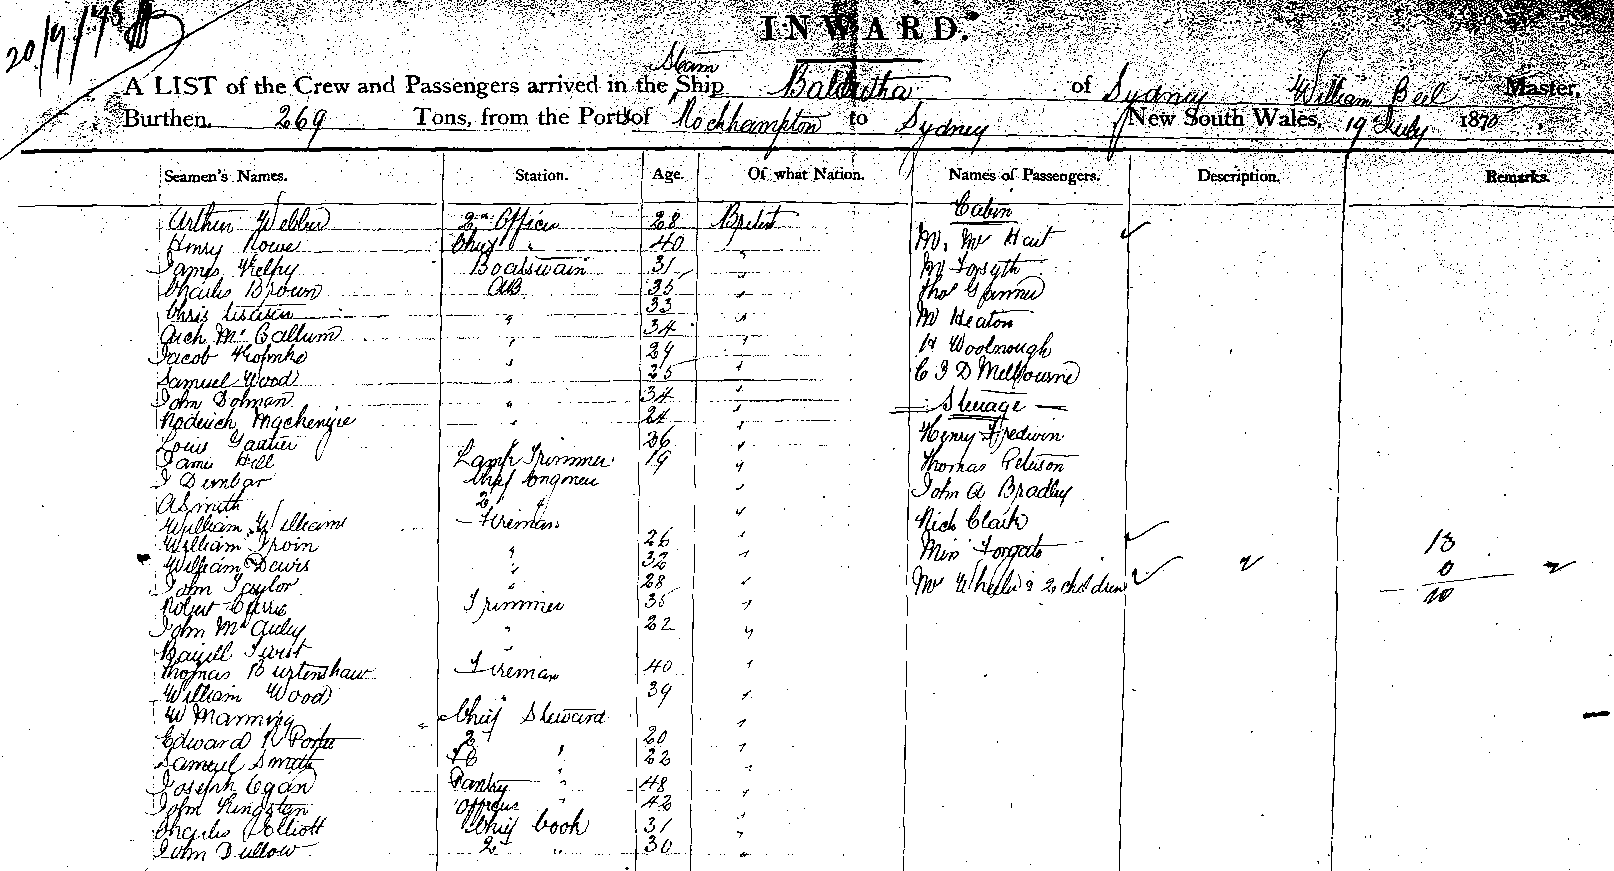 20/7/75
INWARD.
Steam
A LIST of the Crew and Passengers arrived in the Ship Balclutha of Sydney William Beel Master,
Burthen, 269 Tons, from the Port of Rockhampton to Sydney New South Wales, 19 July 187
Seamen's Names. Station. Age. Of what Nation. Names of Passengers. Description. Remarks.
Cabin
Arthur Webber 2nd Officer 28 British
Henry Rowe Chief " 40 " Mr. Mc Hart
James Kelly Boatswain 31 " Mr Forsyth
Charles Brown AB 35 "
Chris 33 " Mr Heaton
Arch Mc Callum " 34 " H Woolnough
Jacob " 29 "
Samuel Wood " 25 " C J D Melbourne
John Dohman " 34 " Steerage
Roderick Mackenzie " 24 "
Louis Gautier 26 " Henry Fredwin
James Hill Lamp Trimmer 19 " Thomas Peterson
J Dunbar Chief Engineer " John A Bradley
A Smith 2 " "
William Williams Fireman " Nick Clark
William Irvin " 26 " Miss
William Dewis " 32 " 13
John Taylor " 28 " Mr Wheeler & 2 children " 0 "
Robert Currie Trimmer 35 " 10
John McAuley " 22 "
Twist "
Thomas Burtenshaw Fireman 40 "
William Wood " 39 "
W Manning Chief Steward "
Edward R Porter 2 " 20 "
Samuel Smith " 22 "
Joseph Egan Pantry " 48 "
John Kingston Officers " 42 "
Charles Elliott Chief Cook 31 "
John Dullow 2 " 30 "